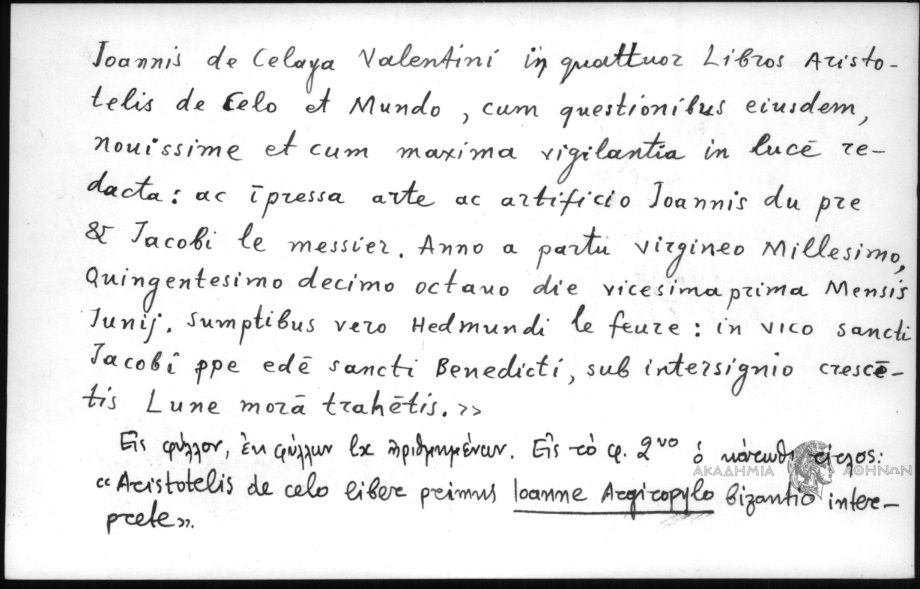 Joannis de Celaya Valentini in quattuor Libros Aristo-
telis de Celo et Mundo, cum questionibus eiusdem,
nouissime et cum maxima vigilantia in lucē re-
dacta: ac īpressa arte ac artificio Joannis du pre
& Jacobi le messier. Anno a partu virgineo Millesimo,
Quingentesimo decimo octauo die vicesima prima Mensis
Junij. Sumptibus vero Hedmundi le feure: in vico sancti
Jacobi ppe edē sancti Benedicti, sub intersignio crescē-
tis Lune morā trahētis.»
Εἰς φύλλον, ἐκ φύλλων ἠριθμημένων. Εἰς τὸ φ. 2νο ὁ κάτωθι τίτλος:
«Aristotelis de celo liber primus Ioanne Argiropylo bizantio inter-
prete».
ΑΚΑΔΗΜΙΑ ΑΘΗΝΩΝ